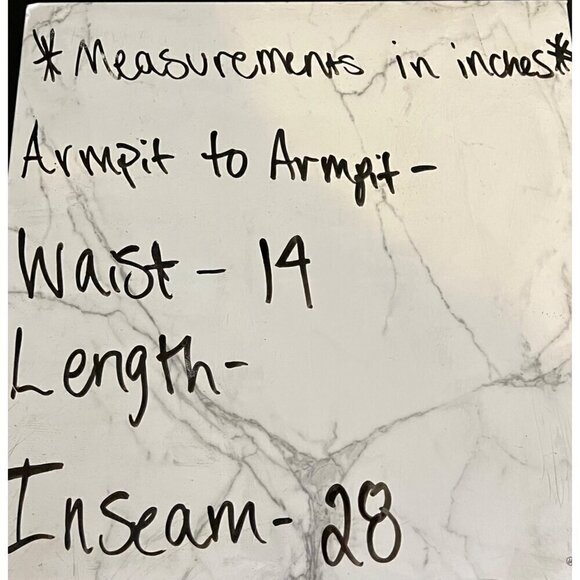 *Measurements in inches*
Armpit to Armpit-
Waist - 14
Length-
Inseam- 28